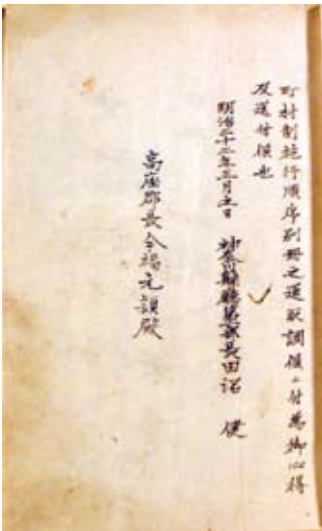 町村制施行順序別冊之通取調候ニ付為御心得
及送付候也
明治二十二年三月 日 神奈川県庁第 部長田沼 健
高座郡長今福元頴殿